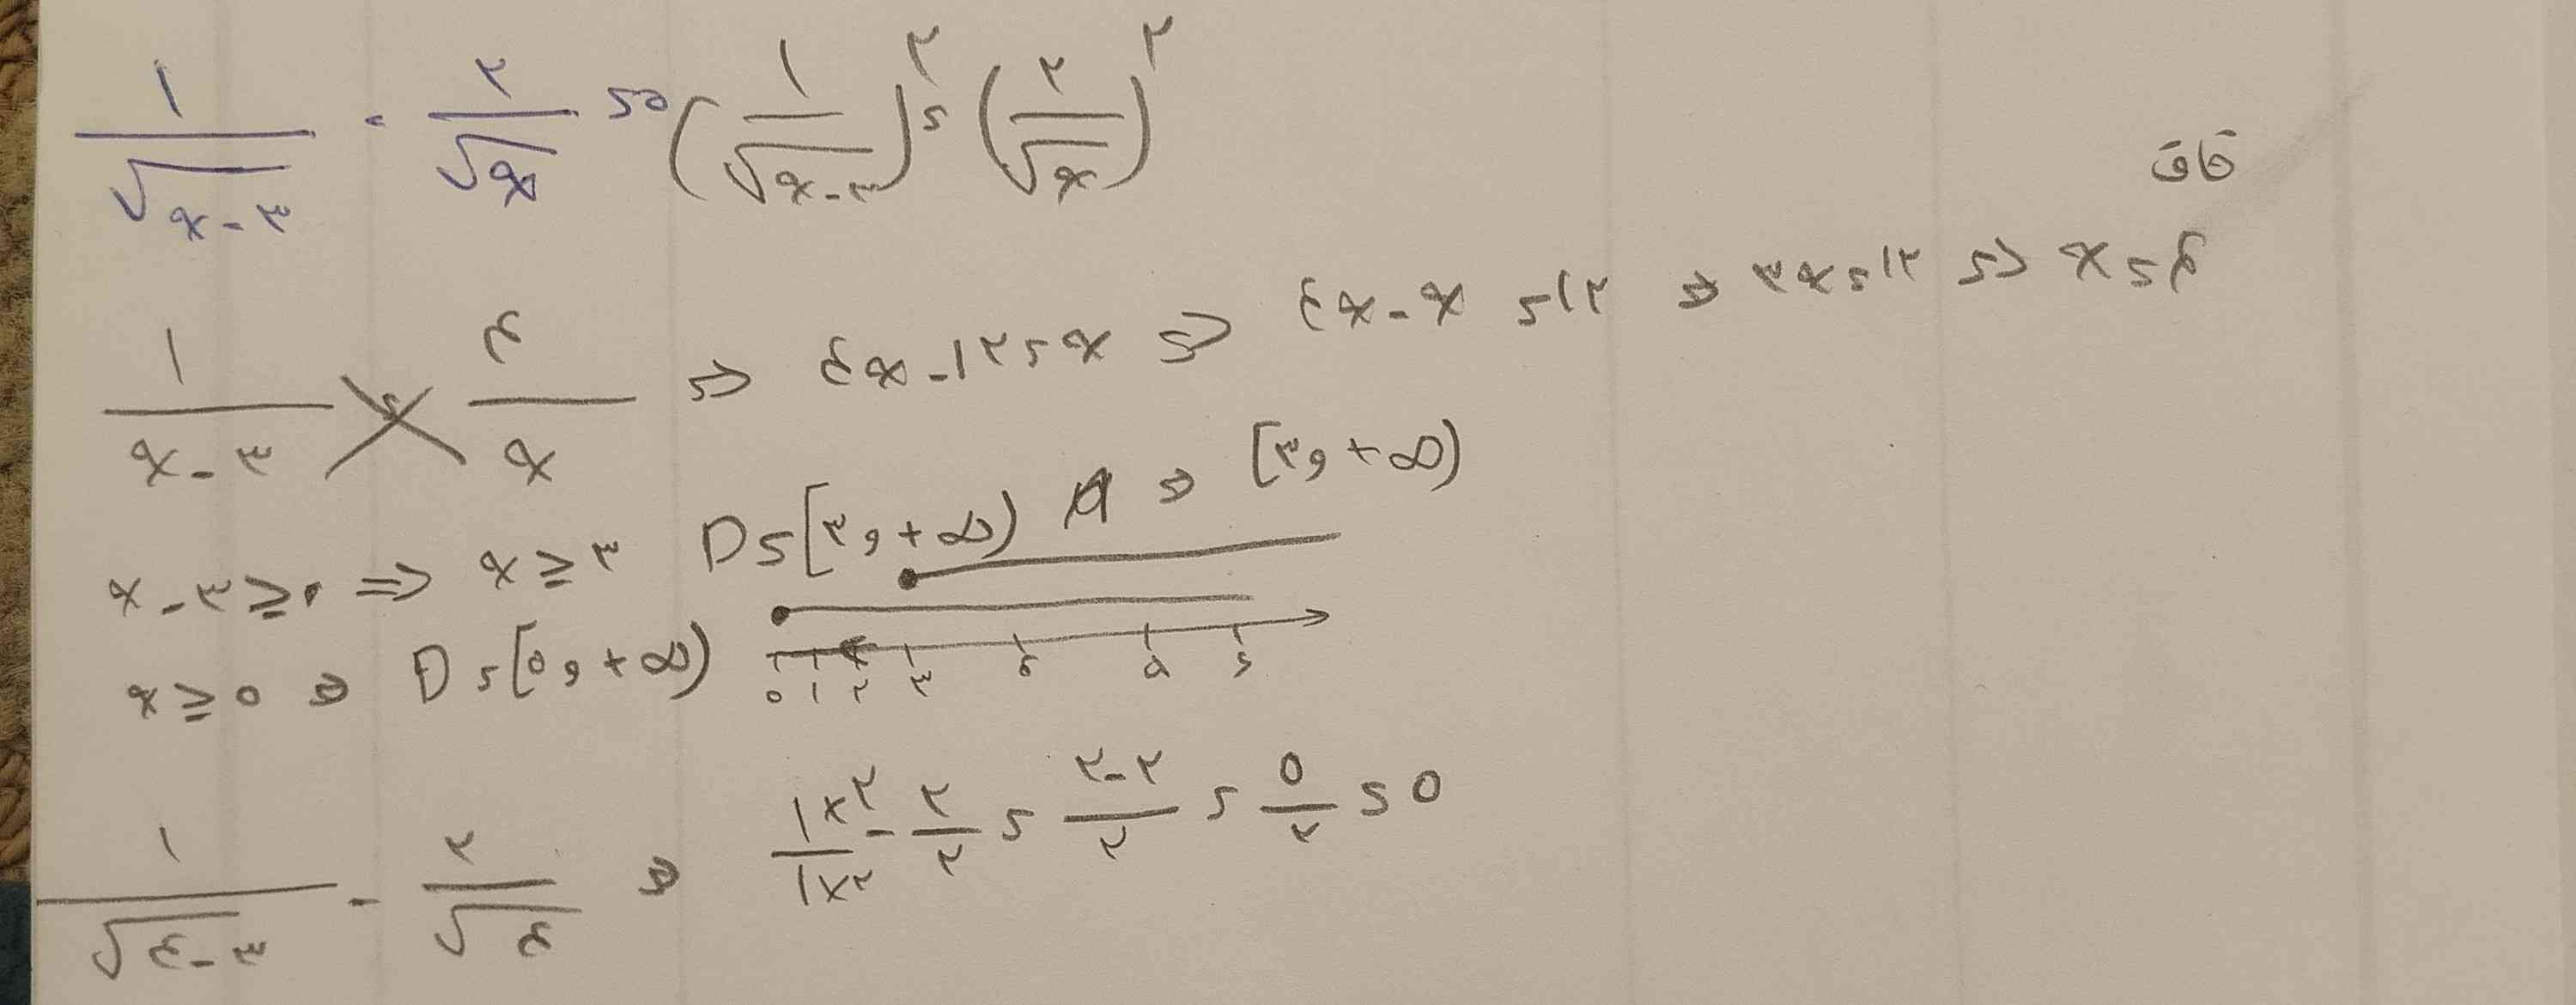 ۱/√(x-۳) - ۲/√x = ۰ (۱/√(x-۳))^۲ = (۲/√x)^۲
قاق
۱/(x-۳) = ۴/x ⇒ ۴x-۱۲=x ⇒ ۴x-x=۱۲ ⇒ ۳x=۱۲ ⇒ x=۴
x-۳≥۰ ⇒ x≥۳ D=[۳,+∞) ⇒ [۳,+∞)
x≥۰ ⇒ D=[۰,+∞)
۰ ۱ ۲ ۳ ۴ ۵ ۶
۱/√(۴-۳) - ۲/√۴ ⇒ (۱×۲)/(۱×۲) - ۲/۲ = (۲-۲)/۲ = ۰/۲ = ۰